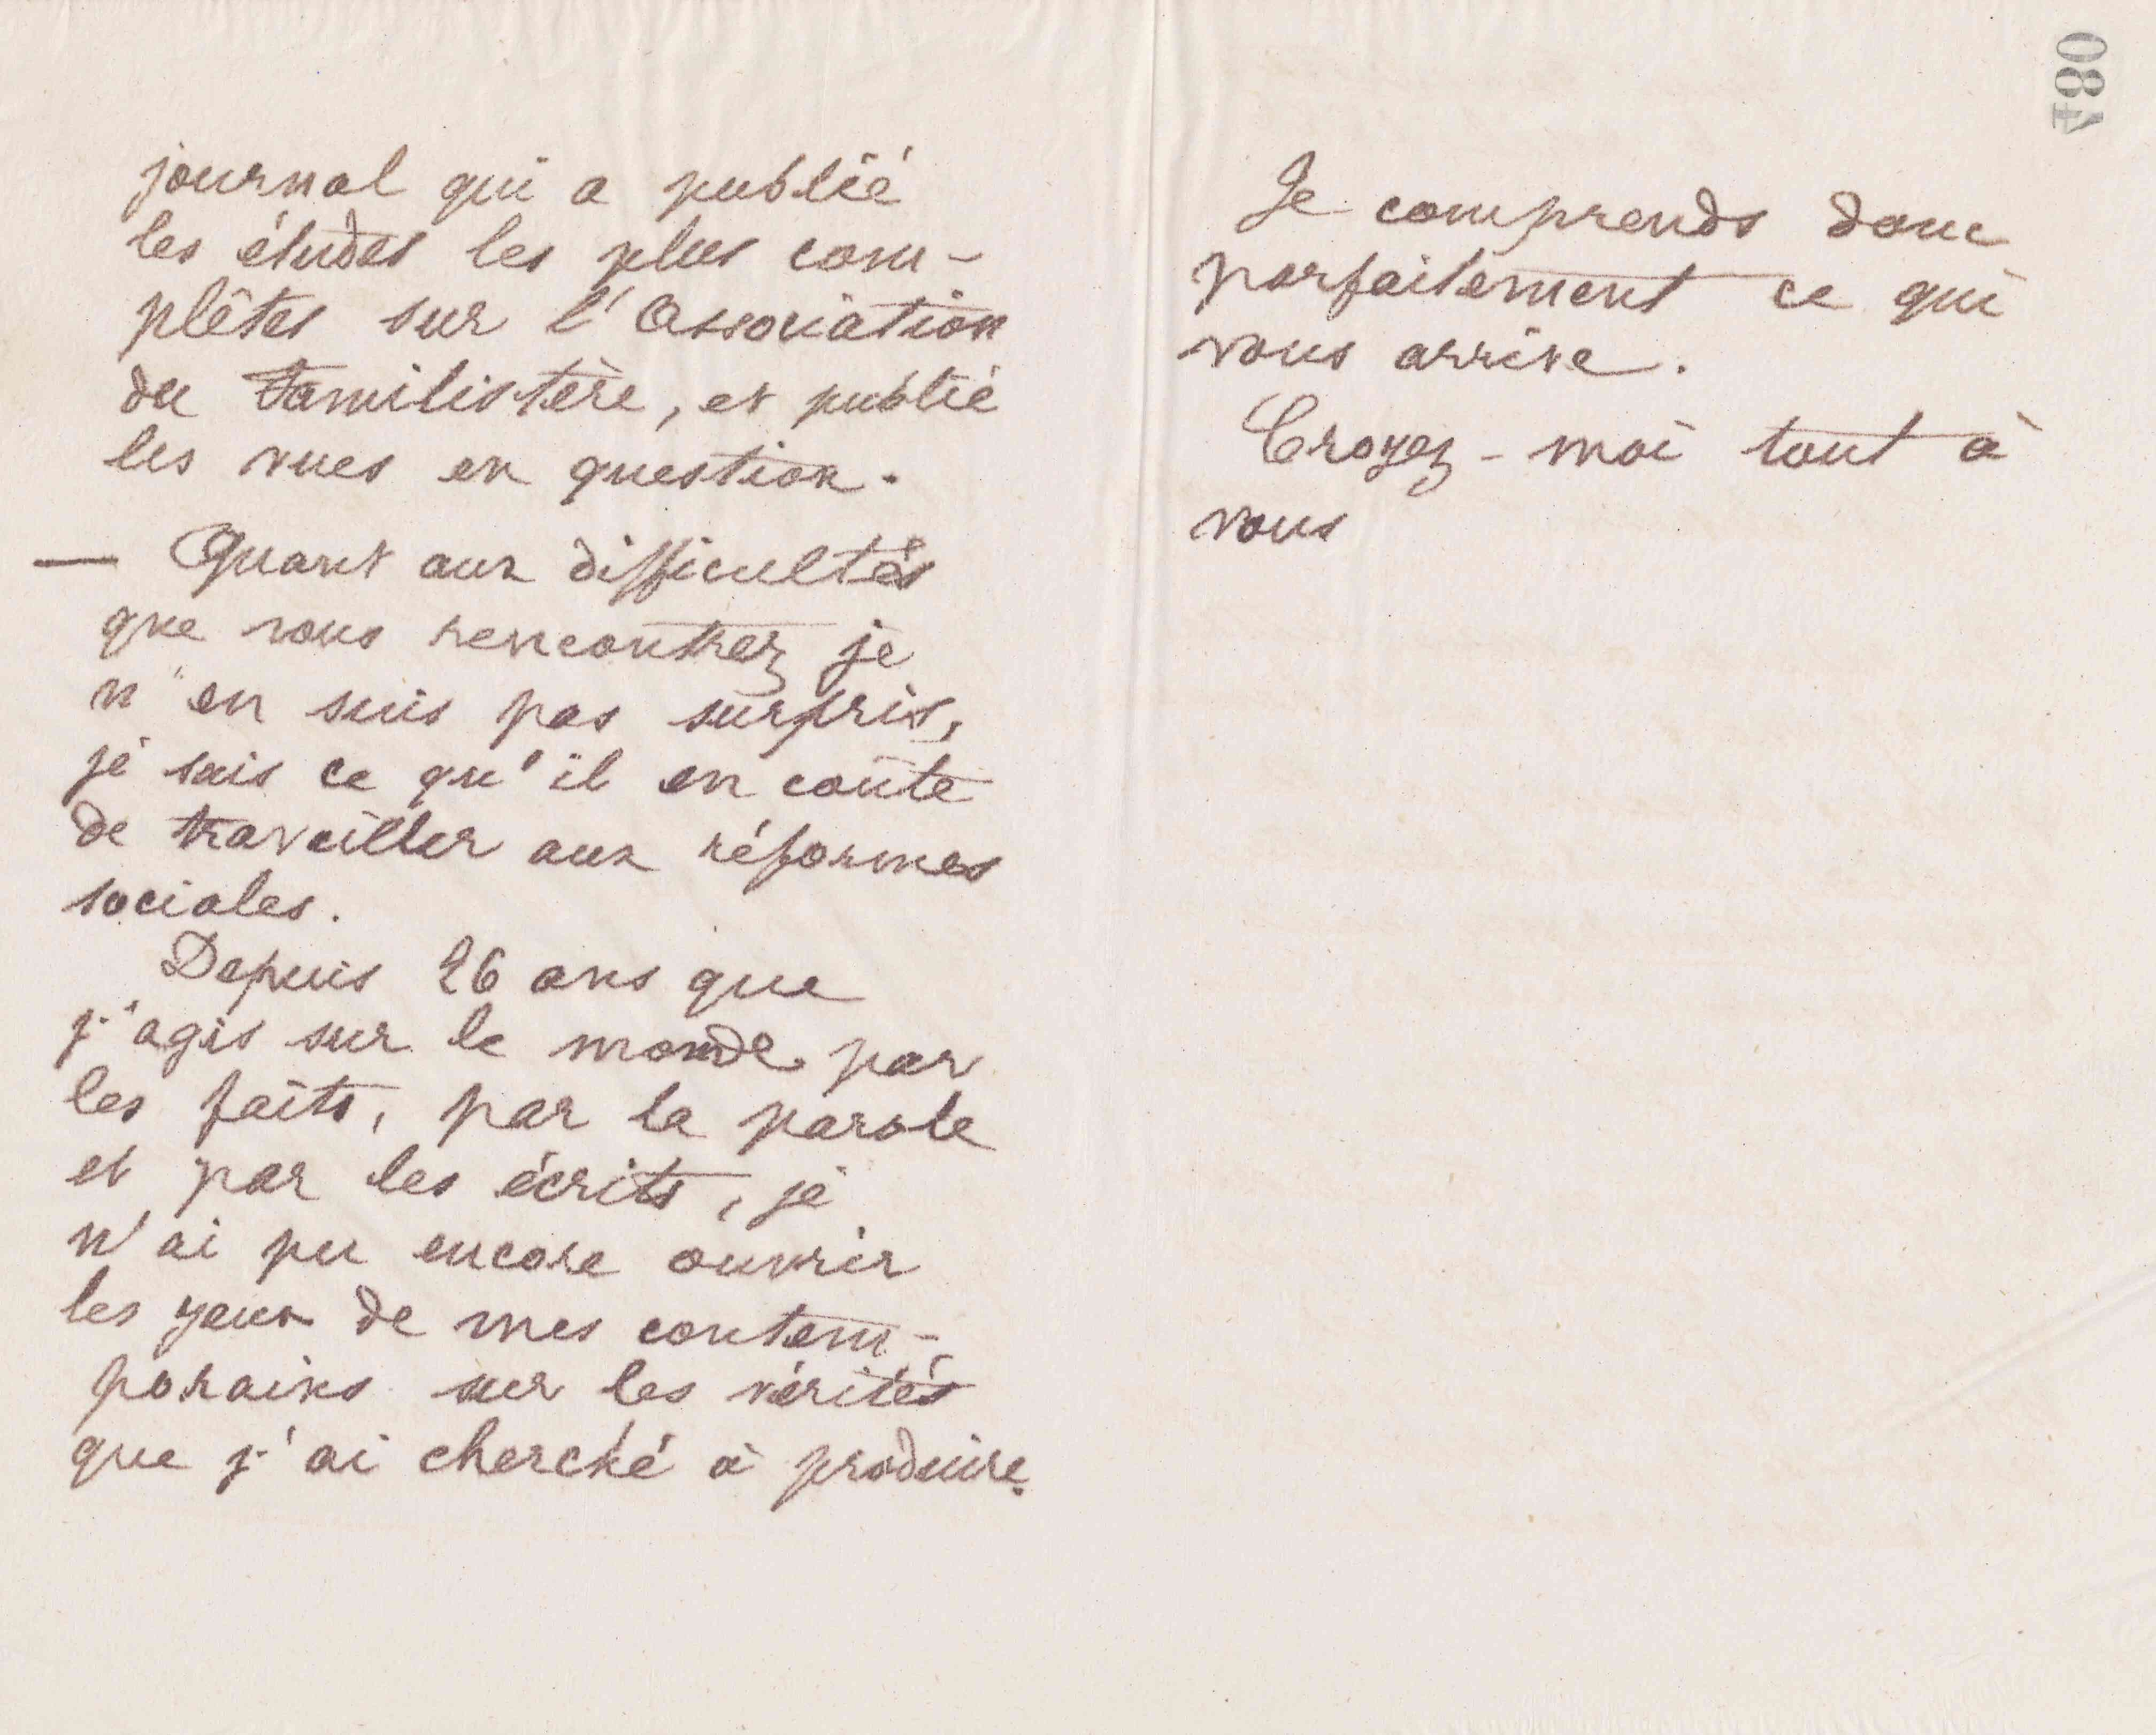 journal qui a publié
les études les plus com-
plètes sur l'Association
du Familistère, et publié
les vues en question.
— Quant aux difficultés
que vous rencontrez je
n'en suis pas surpris,
je sais ce qu'il en coûte
de travailler aux réformes
sociales.
Depuis 26 ans que
j'agis sur le monde par
les faits, par la parole
et par les écrits, je
n'ai pu encore ouvrir
les yeux de mes contem-
porains sur les vérités
que j'ai cherché à produire.
480
Je comprends donc
parfaitement ce qui
vous arrive.
Croyez-moi tout à
vous